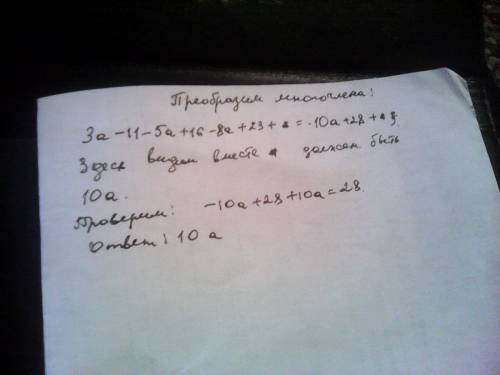 Преобразим многочлена!
3а -11 -5а +16 -8а +23 + * = -10а +28 + *
Здесь видим вместо * должен быть
10а.
Проверим: -10а +28 +10а = 28.
Ответ: 10 а